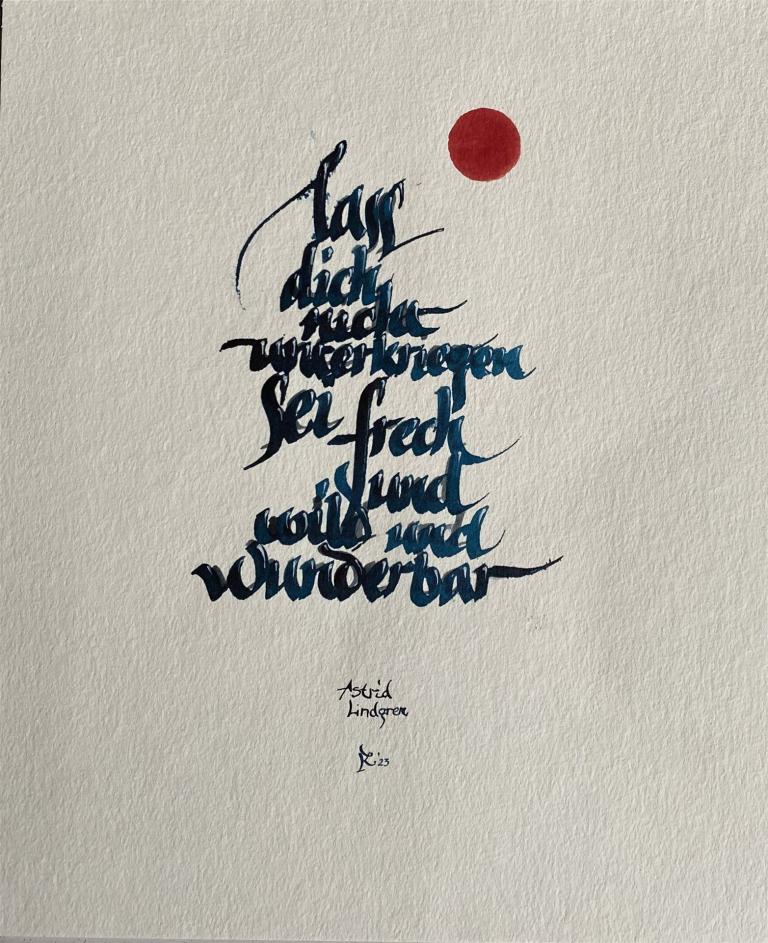 lass
dich
nicht
unterkriegen
Sei frech
und
wild und
wunderbar
Astrid
Lindgren
'23